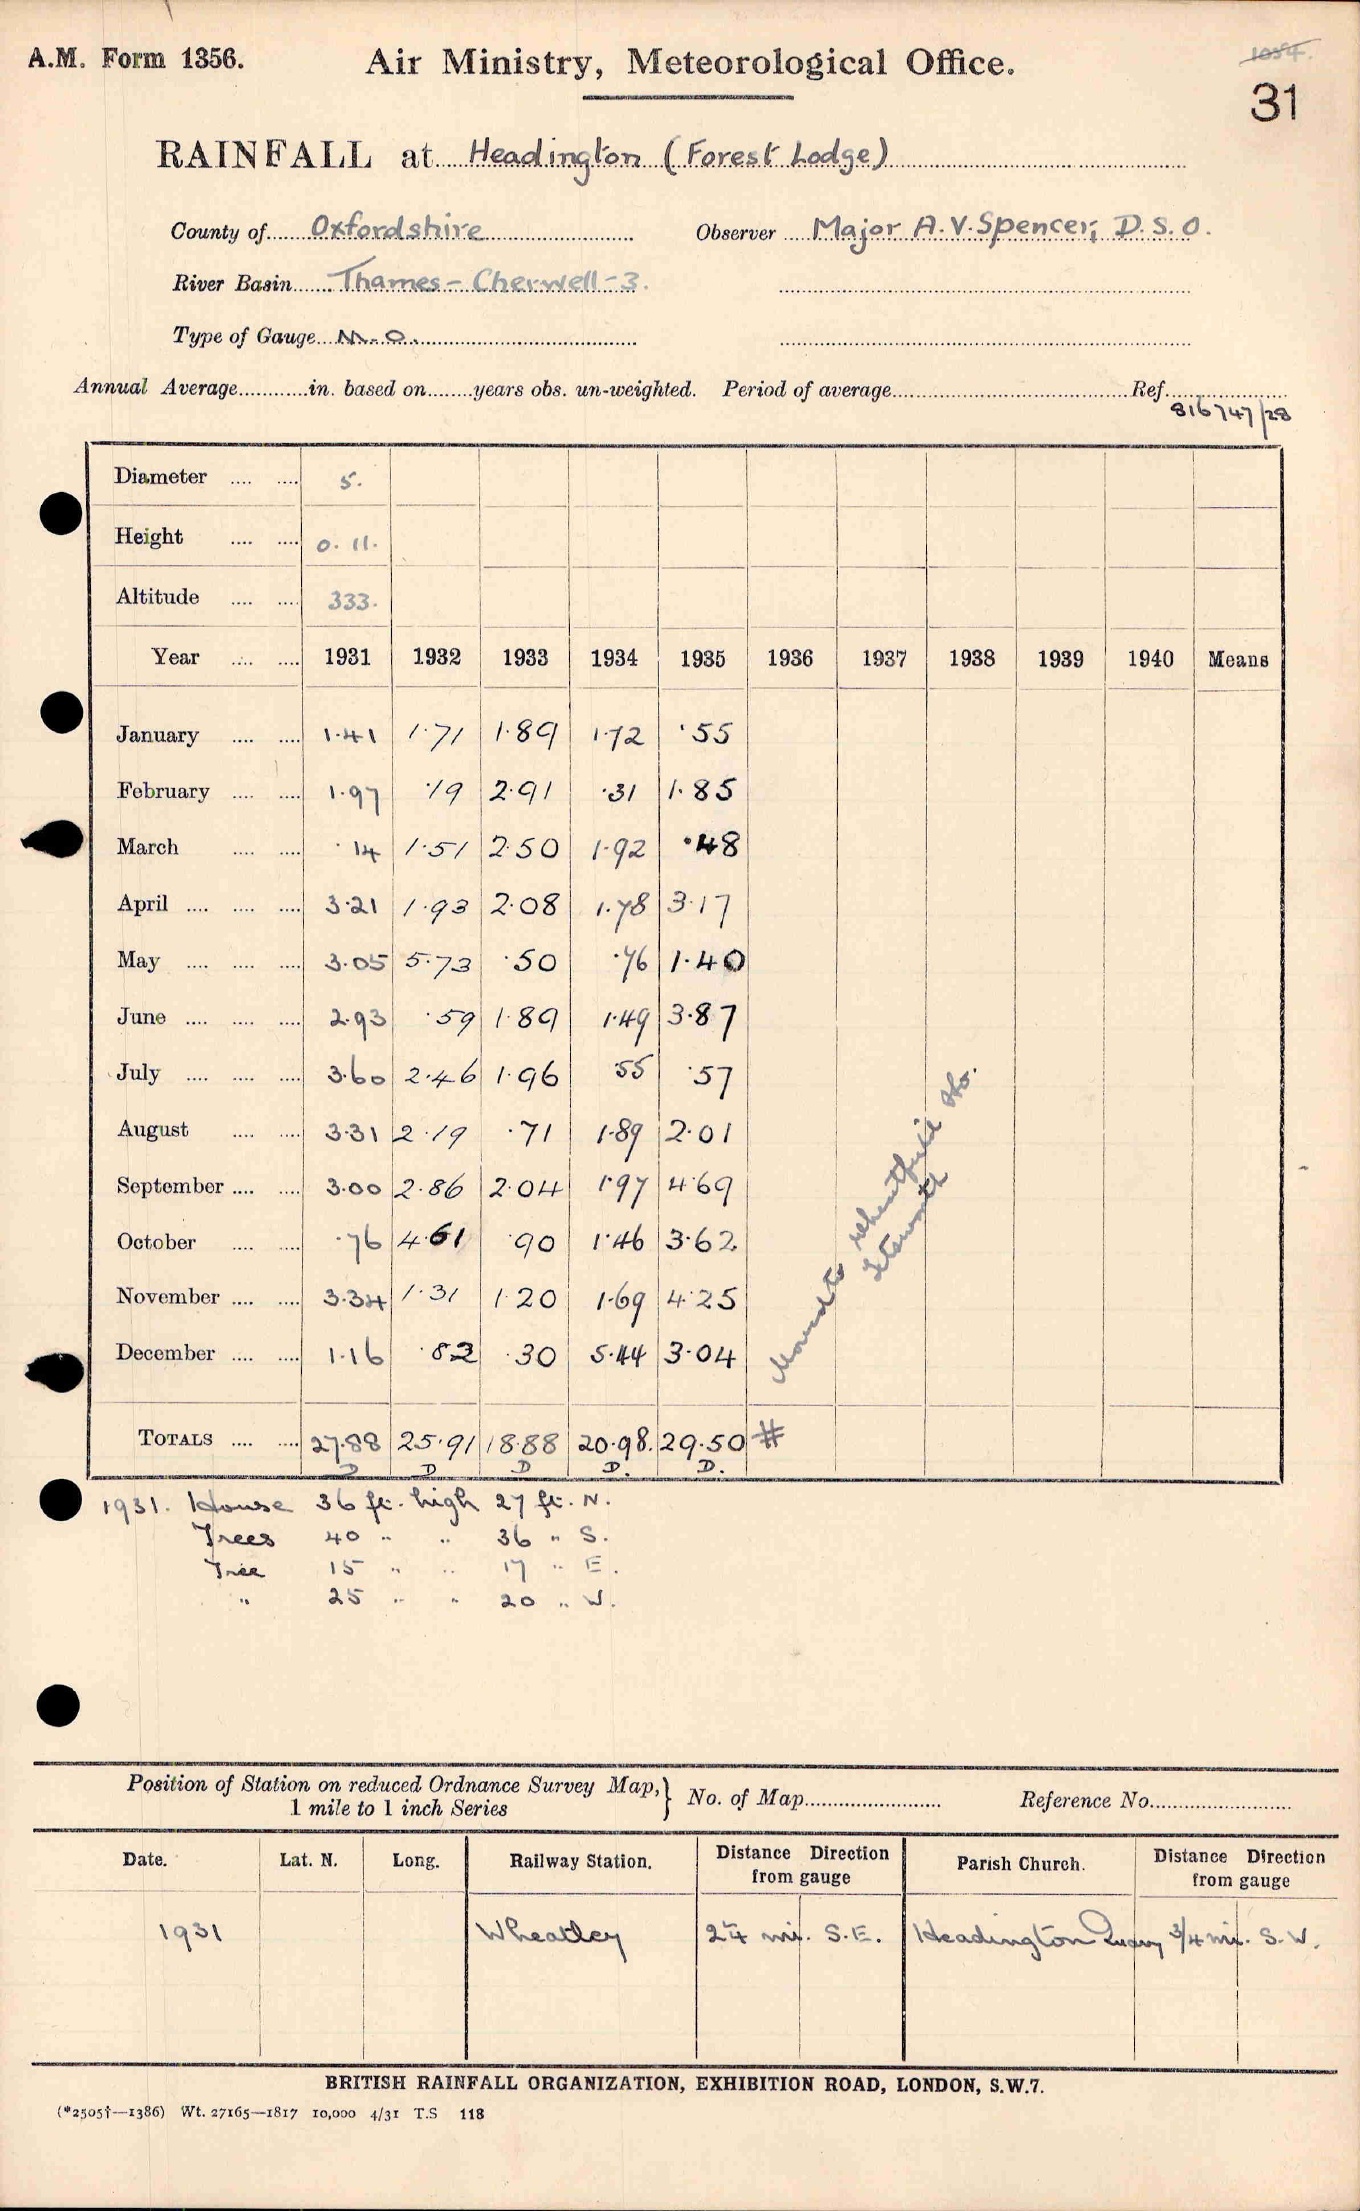 A.M. Form 1356.
Air Ministry, Meteorological Office.
1084.
31
RAINFALL at Headington (Forest Lodge)
County of Oxfordshire Observer Major A.V. Spencer, D.S.O.
River Basin Thames - Cherwell - 3.
Type of Gauge M.O.
Annual Average in. based on years obs. un-weighted. Period of average Ref.
816747/28
Diameter 5.
Height 0.11.
Altitude 333.
Year 1931 1932 1933 1934 1935 1936 1937 1938 1939 1940 Means
January 1.41 1.71 1.89 1.72 .55
February 1.97 .19 2.91 .31 1.85
March .14 1.51 2.50 1.92 .48
April 3.21 1.93 2.08 1.78 3.17
May 3.05 5.73 .50 .76 1.40
June 2.93 .59 1.89 1.49 3.87
July 3.60 2.46 1.96 .55 .57
August 3.31 2.19 .71 1.89 2.01
September 3.00 2.86 2.04 1.97 4.69
October .76 4.61 .90 1.46 3.62
November 3.34 1.31 1.20 1.69 4.25
December 1.16 .82 .30 5.44 3.04
TOTALS 27.88 25.91 18.88 20.98. 29.50 #
D D D D. D.
Moved to Wheatfield Ho.
Tetsworth
1931. House 36 ft. high 27 ft. N.
Trees 40 " " 36 " S.
Tree 15 " " 17 " E.
" 25 " " 20 " W.
Position of Station on reduced Ordnance Survey Map,
1 mile to 1 inch Series } No. of Map Reference No.
Date. Lat. N. Long. Railway Station. Distance Direction from gauge Parish Church. Distance Direction from gauge
1931 Wheatley 2¼ mi. S.E. Headington Quarry 3/4 mi. S.W.
BRITISH RAINFALL ORGANIZATION, EXHIBITION ROAD, LONDON, S.W.7.
(*2505†—1386) Wt. 27165—1817 10,000 4/31 T.S 118